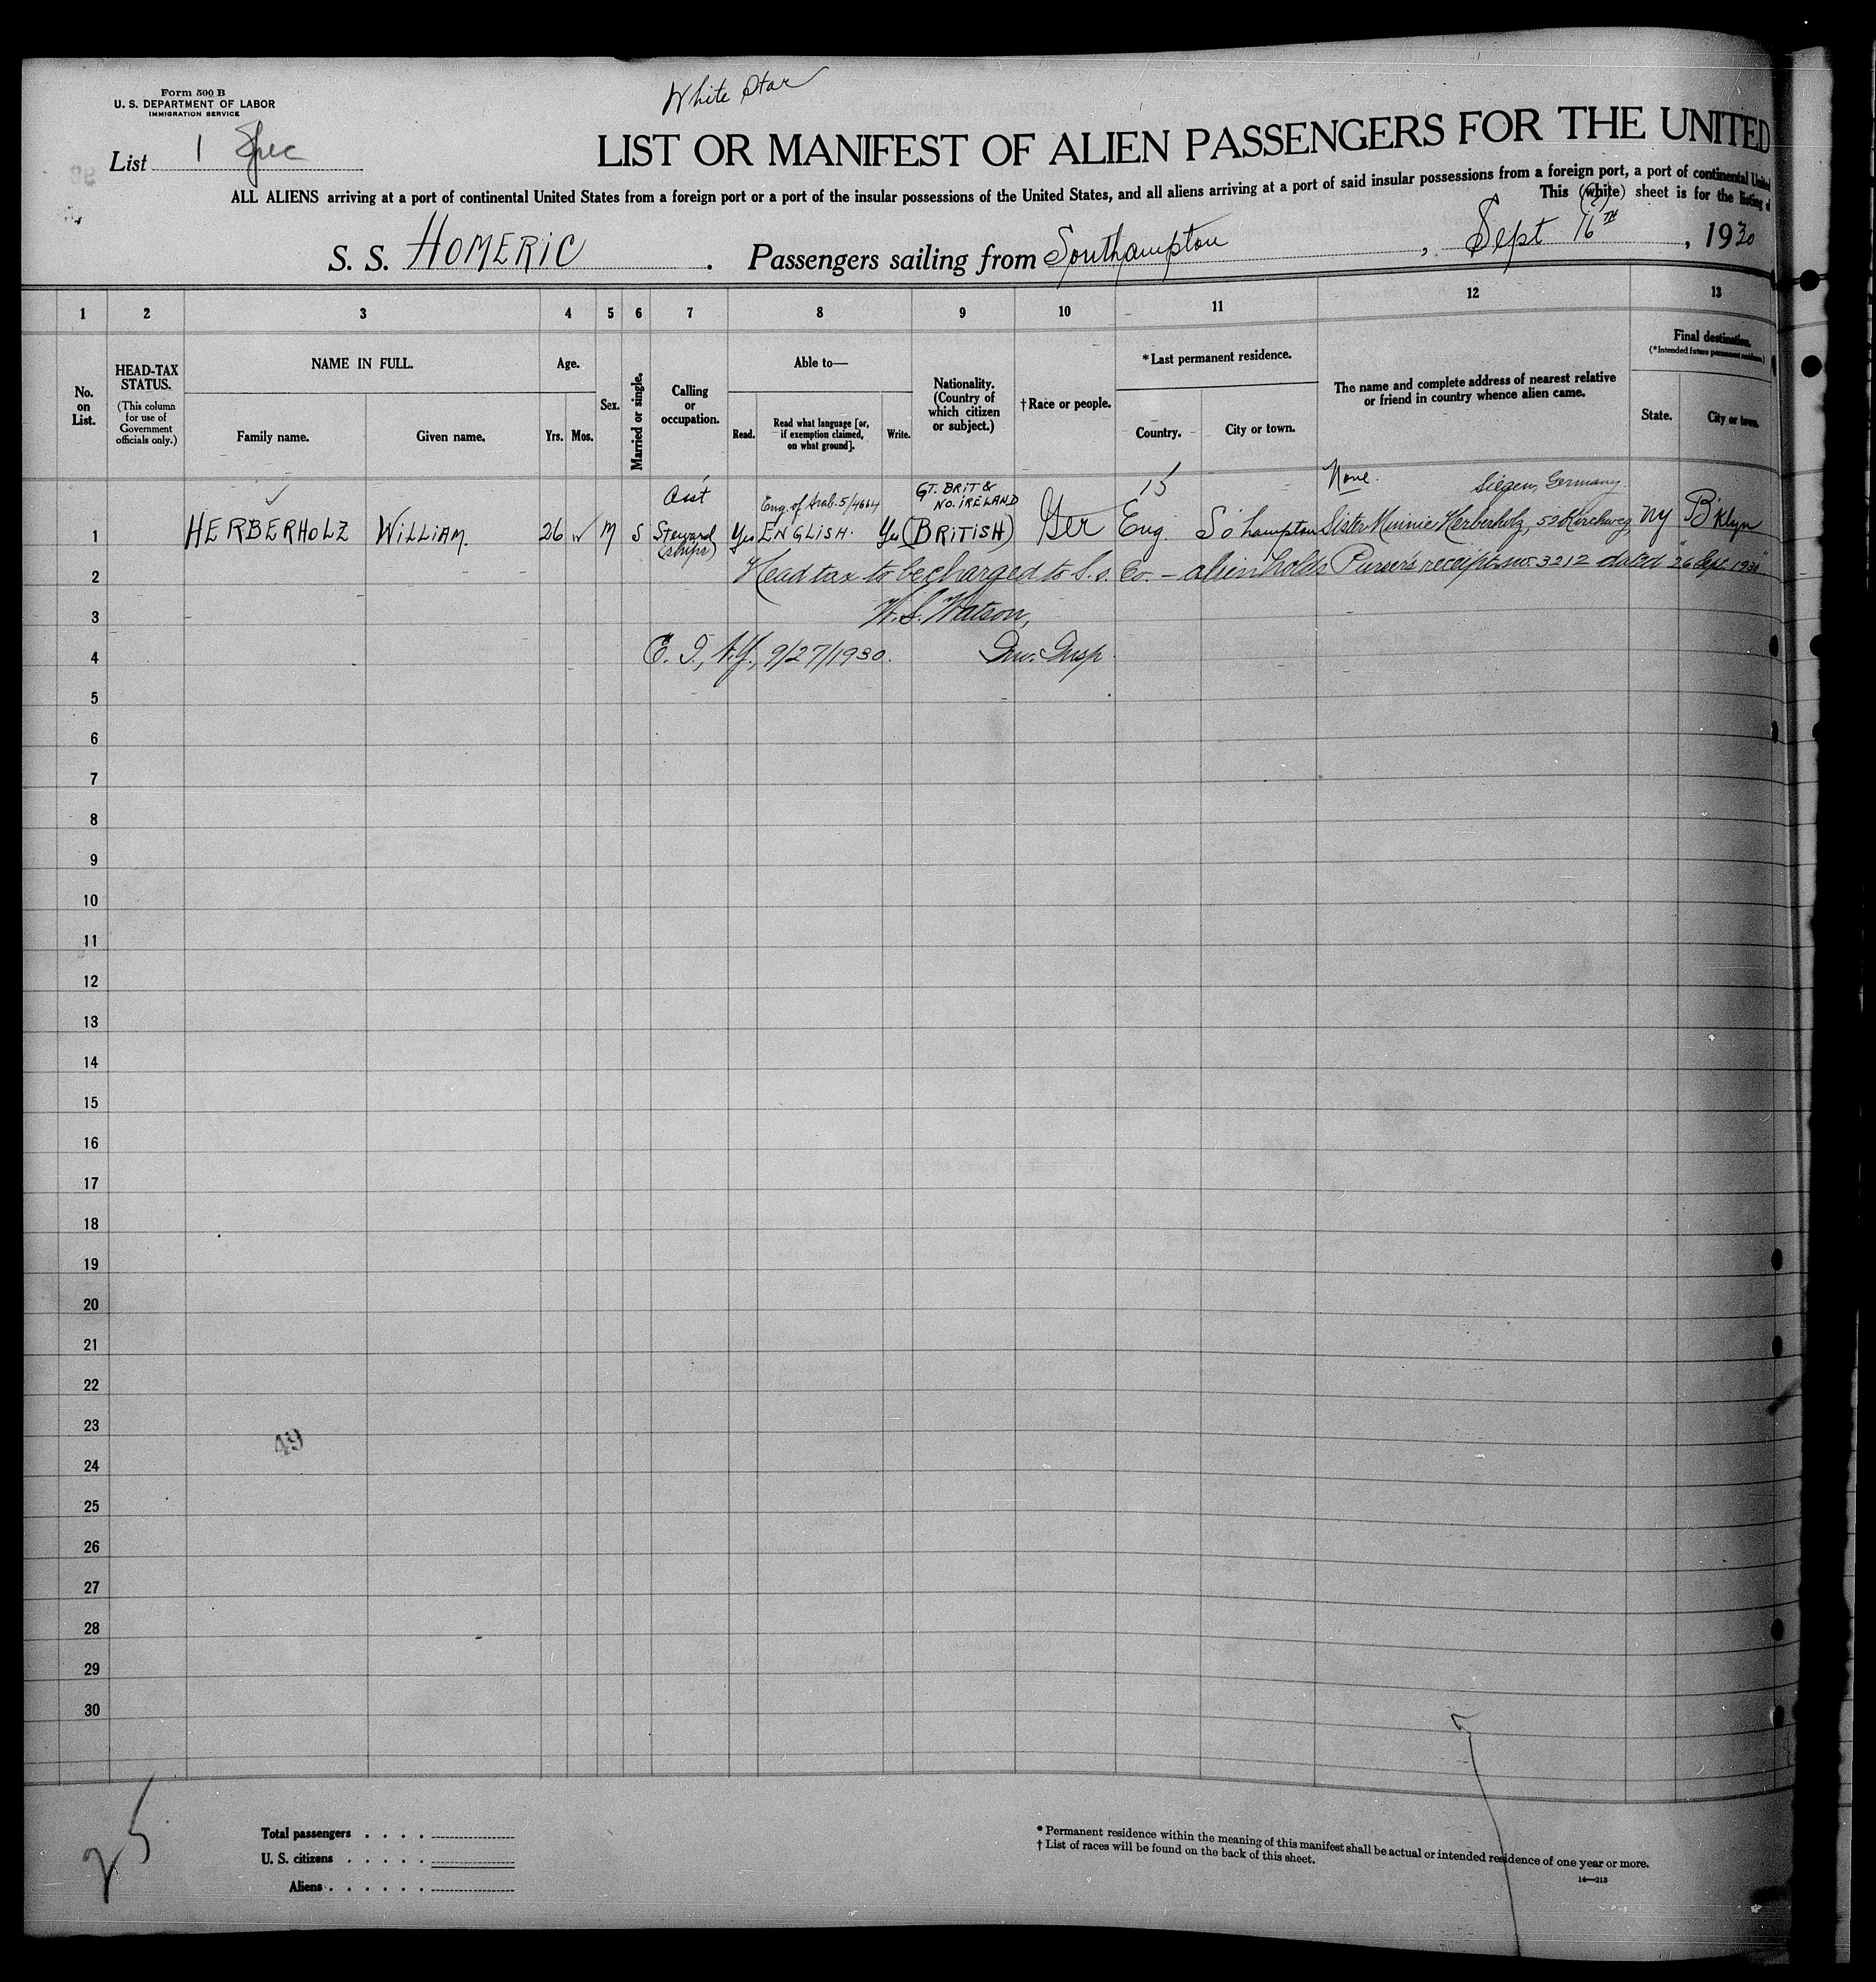 Form 500 B
U. S. DEPARTMENT OF LABOR
IMMIGRATION SERVICE
White Star
List 1 Spec
LIST OR MANIFEST OF ALIEN PASSENGERS FOR THE UNITED
ALL ALIENS arriving at a port of continental United States from a foreign port or a port of the insular possessions of the United States, and all aliens arriving at a port of said insular possessions from a foreign port, a port of continental United
This (white) sheet is for the listing of
S. S. HOMERIC . Passengers sailing from Southampton , Sept 16TH , 1930
1 2 3 4 5 6 7 8 9 10 11 12 13
No. on List.
HEAD-TAX STATUS.
(This column for use of Government officials only.)
NAME IN FULL.
Family name. Given name.
Age.
Yrs. Mos.
Sex.
Married or single.
Calling or occupation.
Able to—
Read. Read what language [or, if exemption claimed, on what ground]. Write.
Nationality. (Country of which citizen or subject.)
†Race or people.
*Last permanent residence.
Country. City or town.
The name and complete address of nearest relative or friend in country whence alien came.
Final destination.
(*Intended future permanent residence.)
State. City or town.
Ass't Eng. of Arab. 5/4664 GT. BRIT & NO. IRELAND 15 None. Siegen, Germany
1 HERBERHOLZ WILLIAM. 26 M S Steward (ships) Yes ENGLISH. Yes (BRITISH) Ger Eng. So'hampton Sister Minnie Herberholz, 50 Kirchweg, NY B'klyn
2 Head tax to be charged to S.S. Co. — alien holds Purser's receipt no. 3212 dated "26 Sept. 1930"
3 W. S. Watson,
4 E. I., N.Y., 9/27/1930. Imm. Insp.
5
6
7
8
9
10
11
12
13
14
15
16
17
18
19
20
21
22
23
49
24
25
26
27
28
29
30
25
Total passengers
U. S. citizens
Aliens
* Permanent residence within the meaning of this manifest shall be actual or intended residence of one year or more.
† List of races will be found on the back of this sheet.
14—213